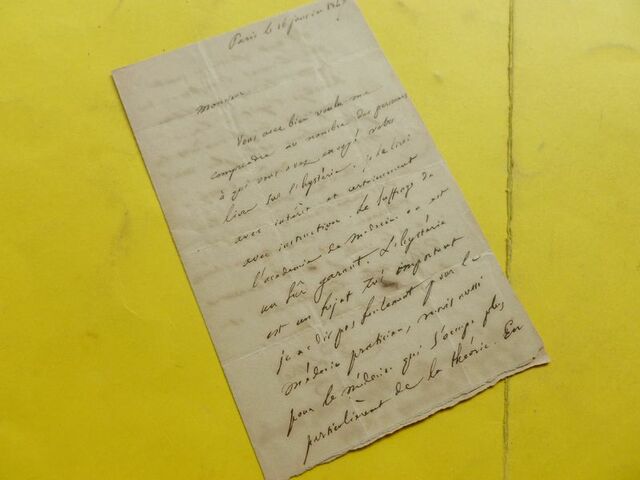 Paris le 16 janvier 184
Monsieur
Vous avez bien voulu me
comprendre au nombre des personnes
à qui vous avez envoyé votre
livre sur l'hystérie. je le lirai
avec intérêt et certainement
avec instruction. Le suffrage de
l'académie de médecine en est
un sûr garant. L'hystérie
est un sujet très important
je ne dis pas seulement pour le
médecin praticien, mais aussi
pour le médecin qui s'occupe plus
particulièrement de la théorie. En